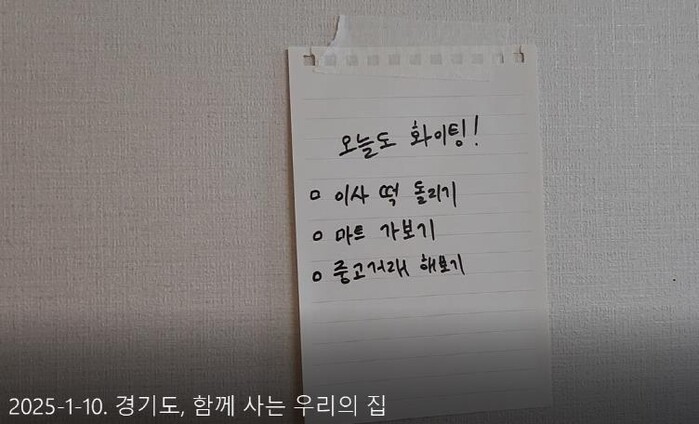 오늘도 화이팅!
□ 이사 떡 돌리기
□ 마트 가보기
□ 중고거래 해보기
2025-1-10. 경기도, 함께 사는 우리의 집